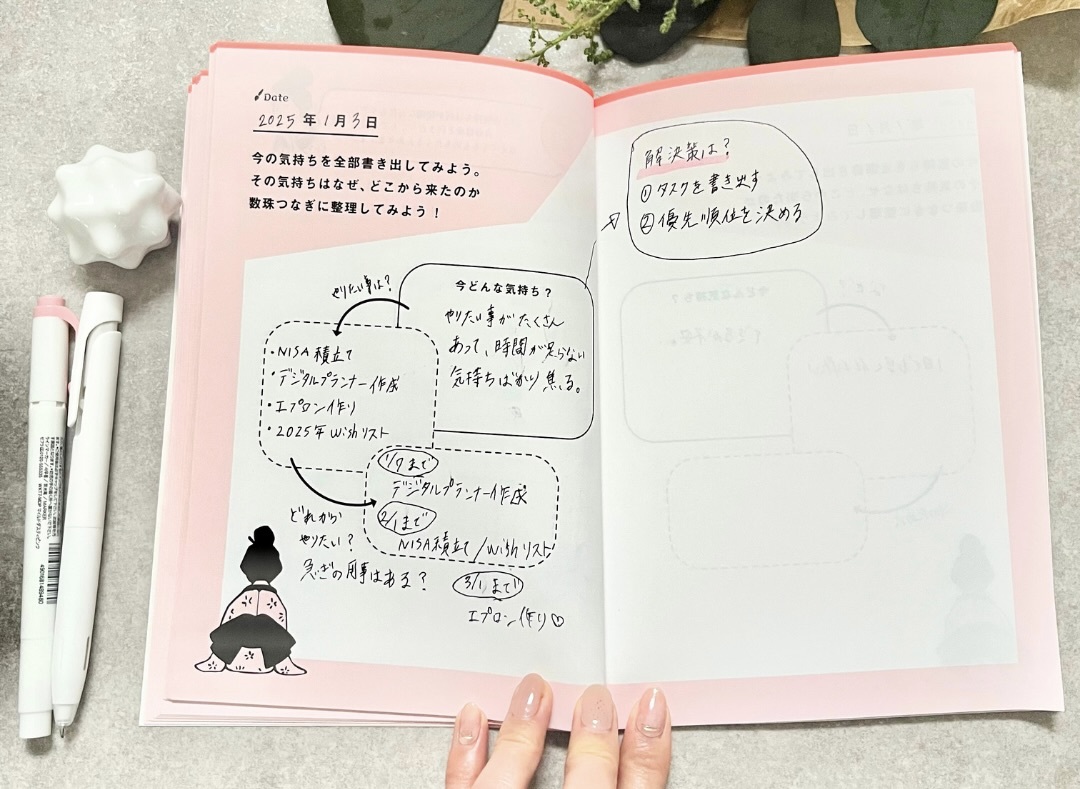 Date
2025年1月3日
今の気持ちを全部書き出してみよう。
その気持ちはなぜ、どこから来たのか
数珠つなぎに整理してみよう！
今どんな気持ち？
やりたい事がたくさん
あって、時間が足らない
気持ちばかり焦る。
やりたい事は？
・NISA積立て
・デジタルプランナー作成
・エプロン作り
・2025年Wishリスト
どれから
やりたい？
急ぎの用事はある？
1/7まで
デジタルプランナー作成
2/1まで
NISA積立て/Wishリスト
3/1まで
エプロン作り♡
解決策は？
①タスクを書き出す
②優先順位を決める